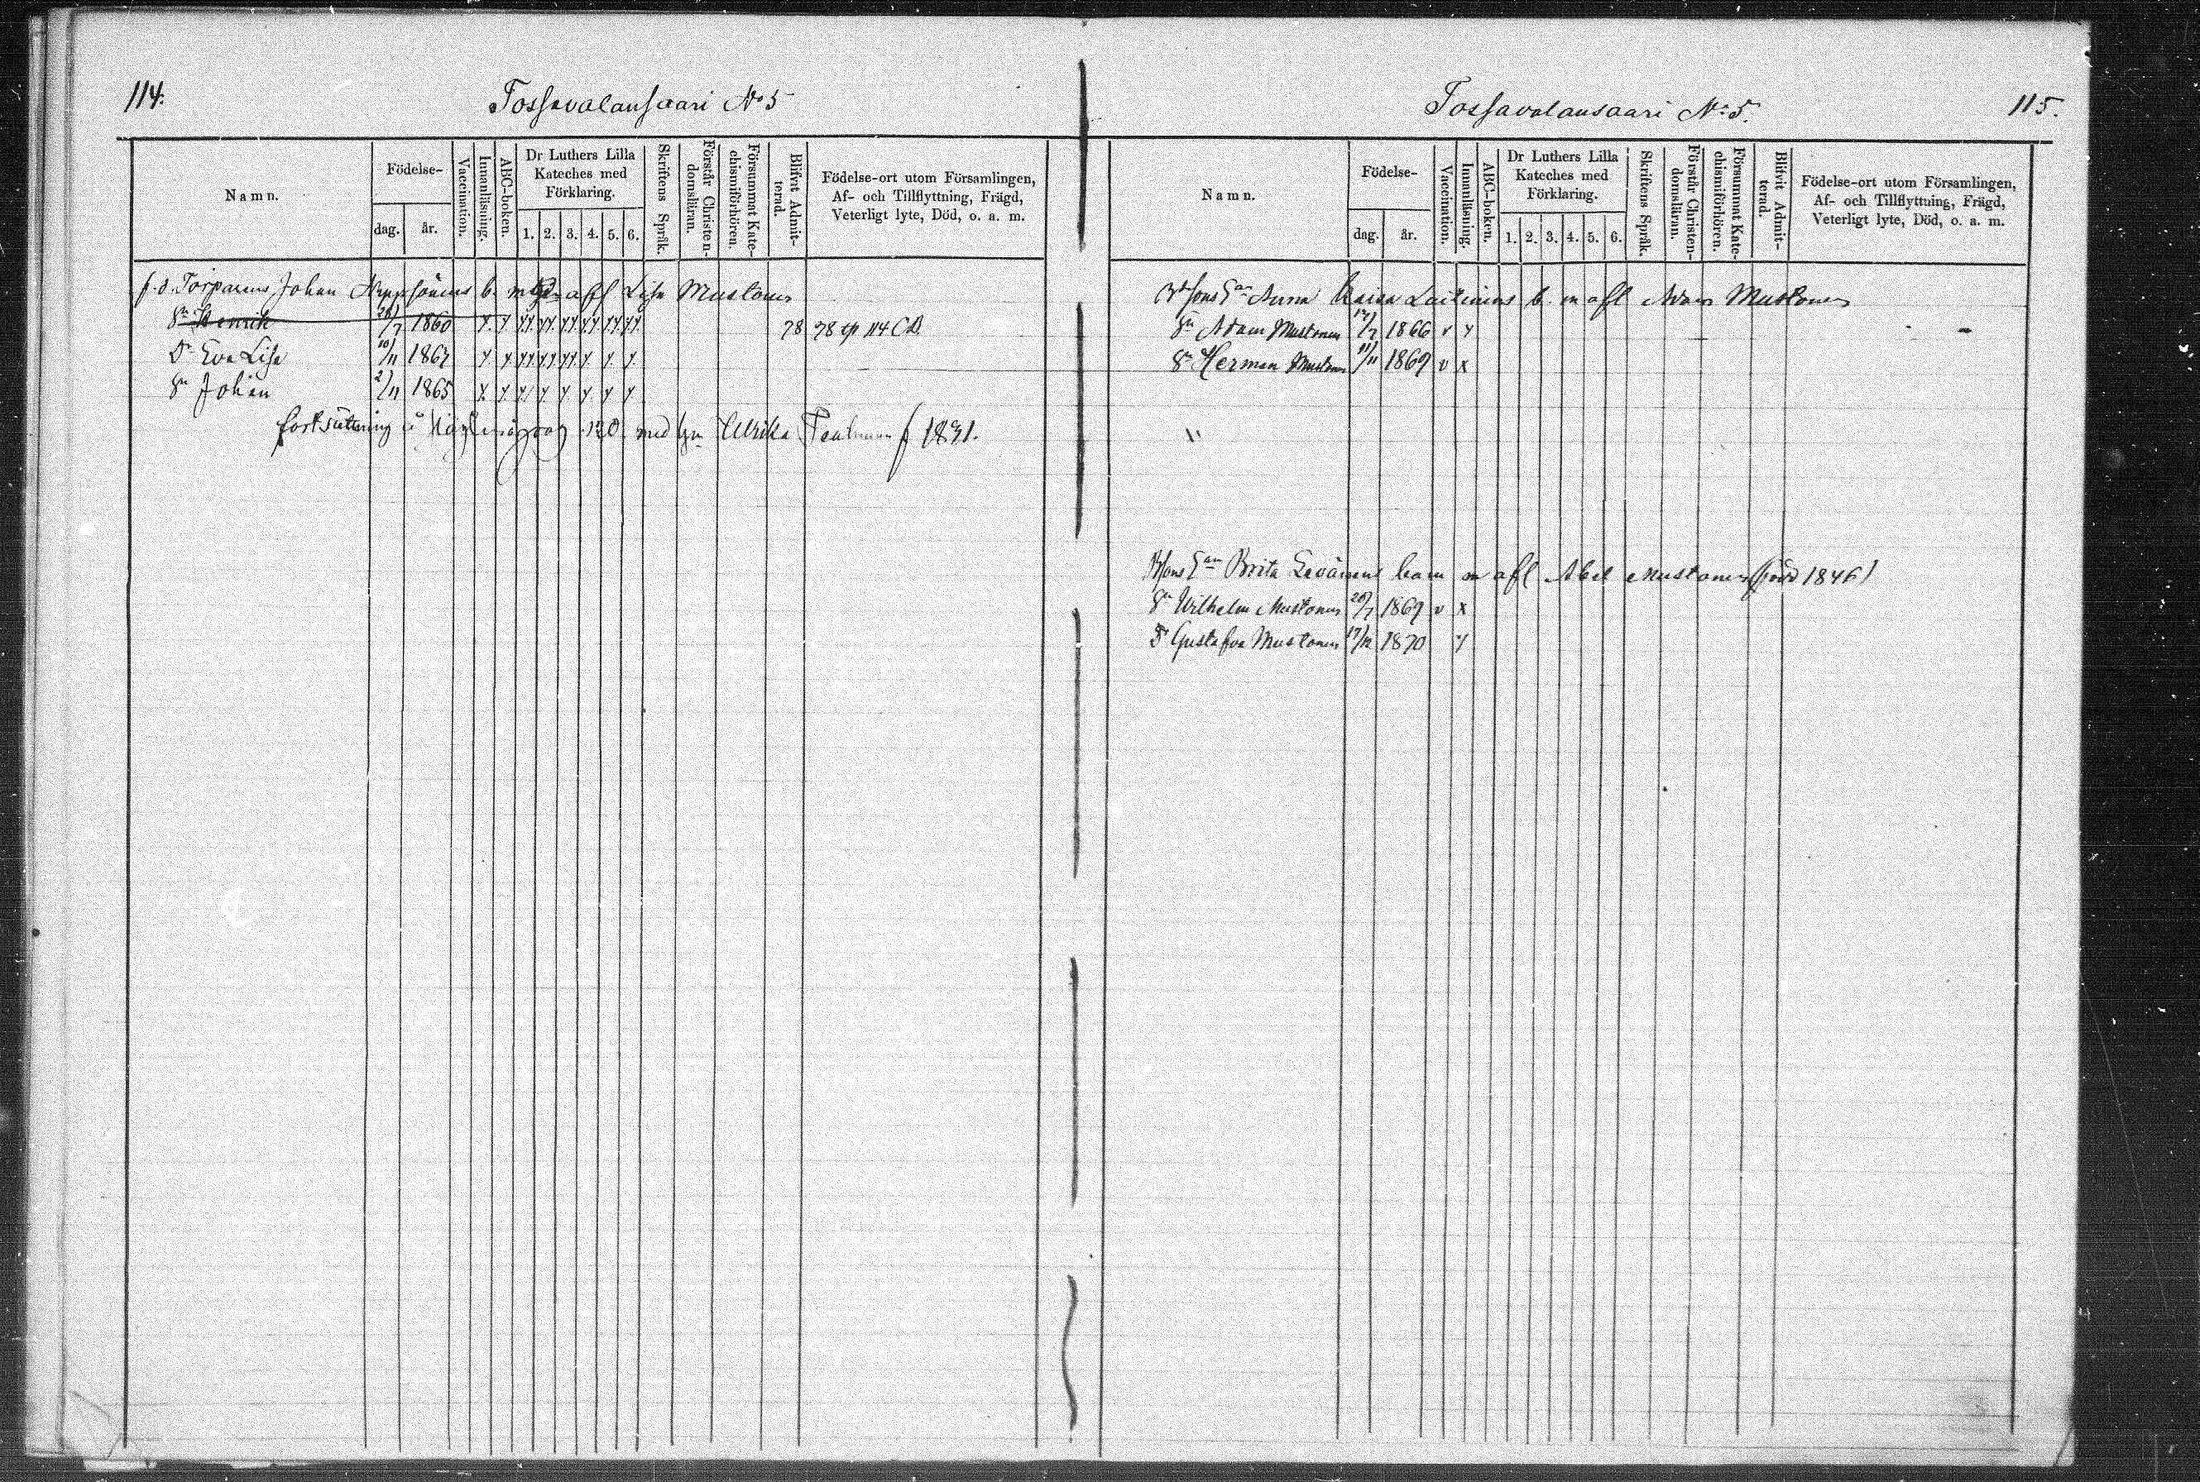 114.
Tossavalansaari No 5
Namn.
Födelse-
dag.
år.
Vaccination.
Innanläsning.
ABC-boken.
Dr Luthers Lilla Kateches med Förklaring.
1. 2. 3. 4. 5. 6.
Skriftens Språk.
Förstår Christendomsläran.
Försummat Katechismiförhören.
Blifvit Admitterad.
Födelse-ort utom Församlingen,
Af- och Tillflyttning, Frägd,
Veterligt lyte, Död, o. a. m.
f. d. Torparens Johan b. med afl Lisa Mustonen
Sn Henrik 28/7 1860 78 78 114 CD.
Dr Eva Lisa 10/11 1867
Sn Johan 2/11 1865
fortsättning å 120 med Ulrika f 1831.
Tossavalansaari No 5.
115.
Namn.
Födelse-
dag.
år.
Vaccination.
Innanläsning.
ABC-boken.
Dr Luthers Lilla Kateches med Förklaring.
1. 2. 3. 4. 5. 6.
Skriftens Språk.
Förstår Christendomsläran.
Försummat Katechismiförhören.
Blifvit Admitterad.
Födelse-ort utom Församlingen,
Af- och Tillflyttning, Frägd,
Veterligt lyte, Död, o. a. m.
Anna Kaisa Laitinens b. m afl Adam Mustonen
Sn Adam Mustonen 17/7 1866 v x
Sn Herman Mustonen 11/11 1869 v x
Brita Levänens barn m afl Abel Mustonen (född 1846)
Sn Wilhelm Mustonen 20/7 1869 v x
Dr Gustafva Mustonen 17/12 1870 x